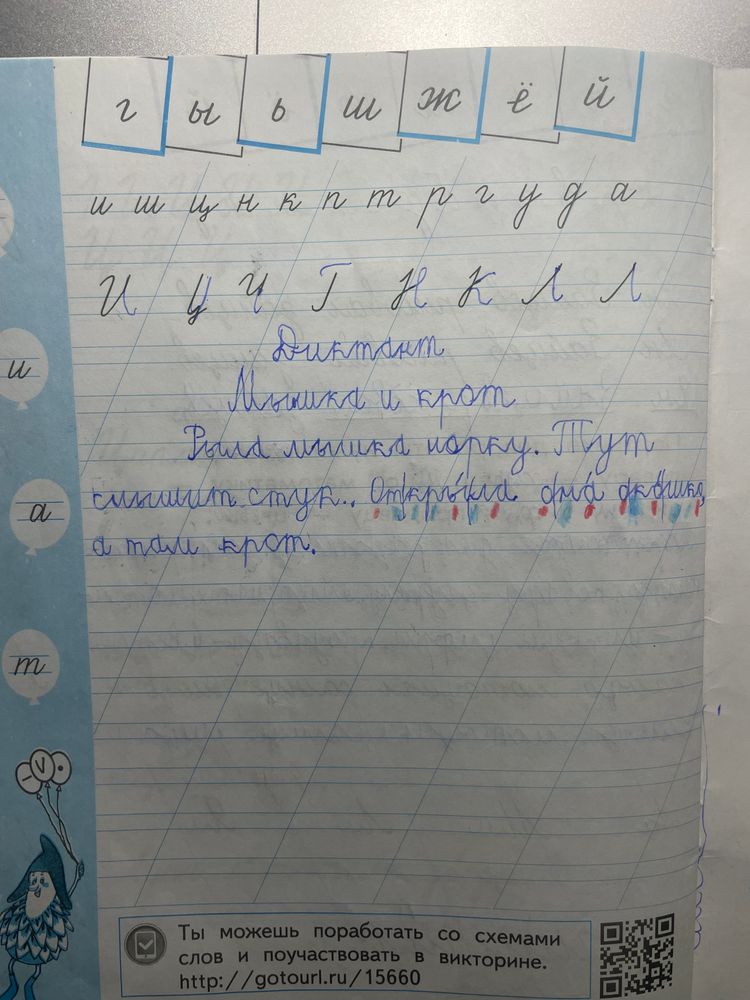 г ы ь ш ж ё й
и ш щ н к п т р г у д а
И Ц Ч Г Н К Л Л
и
Диктант
Мышка и крот
Рыла мышка норку. Тут
смышит стук. Открыла она окошко,
а
а там крот.
т
Ты можешь поработать со схемами
слов и поучаствовать в викторине.
http://gotourl.ru/15660